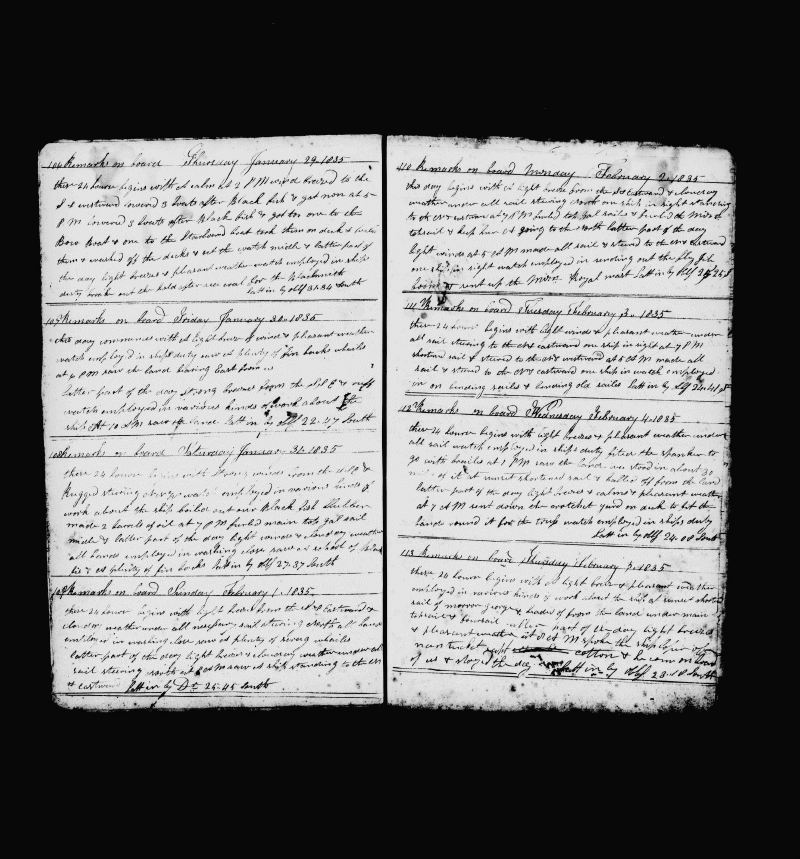 106 Remarks on board Thursday January 29. 1835
these 24 hours begins with a calm at 2 PM wind breezed to the
S & westward lowered 3 boats after Black fish & got non at 5
P M lowered 3 boats after Black fish & got too one to the
Bow boat & one to the Starboard boat took them on deck &
them & washed off the decks & set the watch midle & latter part of
the day light breezes & pleasant weather watch employed in ships
duty broak out the hold after sea coal for the Blacksmith
Latt in by Obs 31-34 South
107 Remarks on board Friday January 30. 1835
this day commences with a light breeze of wind & pleasant weather
watch employed in ships duty saw a plenty of fin backs whails
at 4 PM saw the land baring East
latter part of the day strong breezes from the S & E & ruff
watch employed in various kinds of work about the
ship at 10 AM saw the land Latt in by Obs 29-47 South
108 Remarks on board Saturday January 31. 1835
these 24 hours begins with strong winds from the S & E &
Rugged stering watch employed in various kinds of
work about the ship boiled out our Black fish blubber
made 2 barrels of oil at 7 PM furled main top gal sail
midle & latter part of the day light winds & cloudy weather
all hands employed in washing close saw a school of black
fish & a plenty of fin backs Latt in by Obs 27-37 South
109 Remarks on board Sunday February 1. 1835
these 24 hours begins with a light breeze from the S & Eastward &
cloudy weather under all nesesary sail stering North all hands
employed in washing close saw a plenty of whailes
latter part of the day light breezes & cloudy weather under all
sail stering north at 8 AM saw a ship standing to the
& eastward Latt in by Dt 25-45 South
110 Remarks on board Monday February 2. 1835
this day begins with a light breeze from the S & Eastward & cloudy
weather under all sail stering North one ship in sight standing
to the & eastward at 7 PM furled top gal sails & furled the Mizen
topsail & keep her of going to the North latter part of the day
light winds at 5 AM made all sail & stered to the & eastward
one ship in sight watch employed in reeving out the flying jib
& sent up the mizen Royal mast Latt in by Obs 25
111 Remarks on board Tuesday February 3. 1835
these 24 hours begins with light winds & pleasant weather under
all sail stering to the & eastward one ship in sight at 7 PM
shortned sail & stered to the & westward at 5 AM made all
sail & stered to the & eastward one ship in watch employed
in on bending sails & bending old sailes Latt in by Obs 24-41 S
112 Remarks on board Wednesday February 4. 1835
these 24 hours begins with light breezes & pleasant weather under
all sail watch employed in ships duty fitted the spanker to
go with brailes at 1 PM saw the land stood in about 30
miles of it at sunset shortned sail & halled off from the land
latter part of the day light breezes & calms & pleasant weather
at 7 AM sent down the crotchet yard on deck to fit the
bands round it for the truss watch employed in ships duty
Latt in by Obs 24-08 South
113 Remarks on board Thursday February 5. 1835
these 24 hours begins with a light breeze & pleasant weather
employed in various kinds of work about the ship at sunset shortned
sail of morror george & headed of from the land under main
topsail & foursail latter part of the day light breezes
& pleasant weather at 8 AM spoke the ship
nantucket cotton & he come on board
of us & stayed the day Latt in by Obs 23-18 South